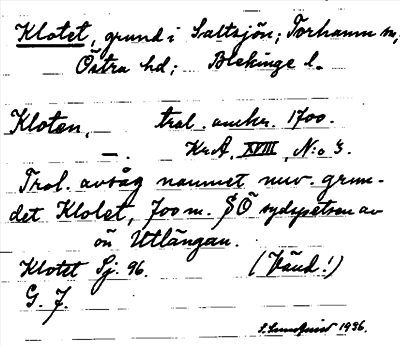 Klotet, grund i Saltsjön; Torhamn sn,
Östra hd; Blekinge l.
Kloten, trol. omkr. 1700.
—. KrA, XVIII, N:o 3.
Trol. avsåg namnet nuv. grun-
det Klotet, 700 m. SÖ sydspetsen av
ön Utlängan.
Klotet Sj. 96. (Vänd!)
G. J.
S. Sundquist 1936.